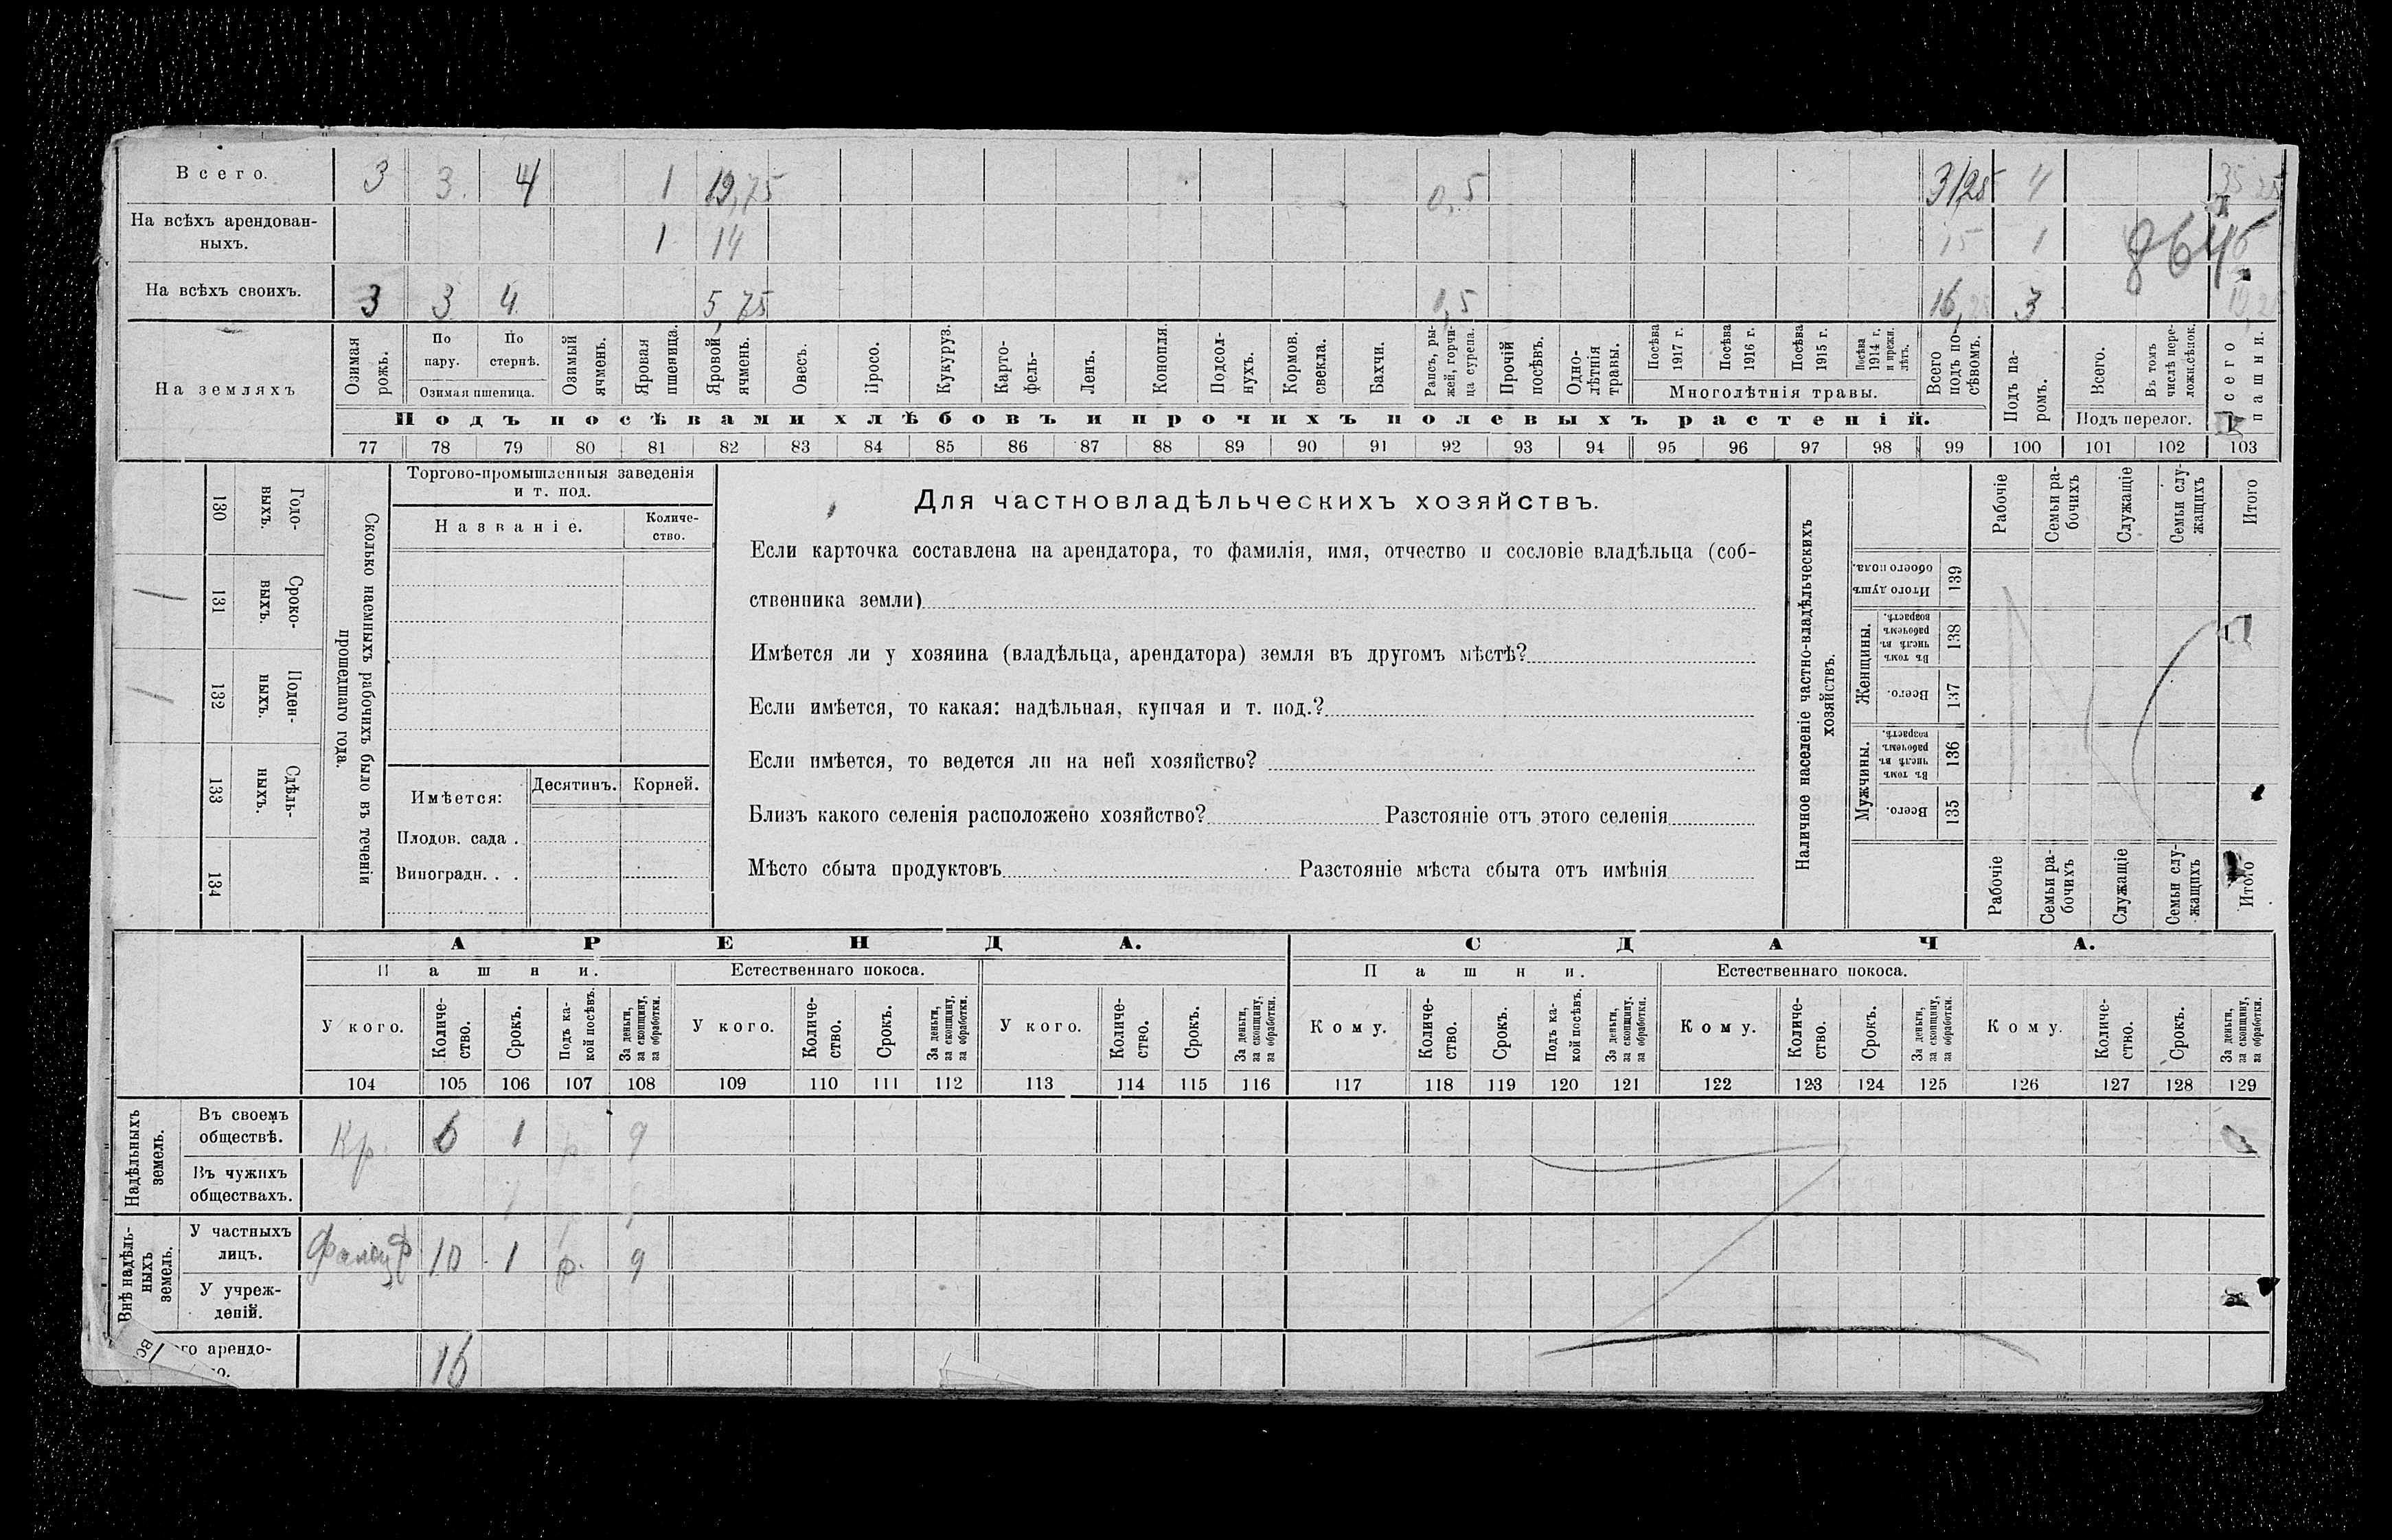 Всего. 3 3. 4 1 19,75 0,5 31,25 4 35 25
На всѣхъ арендован-
ныхъ. 1 14 15 1
8645
На всѣхъ своихъ. 3 3 4 5,75 0,5 16,25 3
На земляхъ
Озимая рожь.
По пару.
По стернѣ.
Озимая пшеница.
Озимый ячмень.
Яровая пшеница.
Яровой ячмень.
Овесъ.
Просо.
Кукуруз.
Карто-
фель-
Ленъ.
Конопля.
Подсол-
нухъ.
Кормов.
свекла.
Бахчи.
Рапсъ, ры-
жей, горчи-
ца сурепа.
Прочій
посѣвъ.
Одно-
лѣтнія
травы.
Посѣва
1917 г.
Посѣва
1916 г.
Посѣва
1915 г.
Посѣва
1914 г.
и прежн.
лѣтъ.
Многолѣтнія травы.
Всего
подъ по-
сѣвомъ.
Подъ па-
ромъ.
Всего.
Въ томъ
числѣ пере-
ложн.сѣнок.
Подъ перелог.
Всего
пашни.
Подъ посѣвами хлѣбовъ и прочихъ полевыхъ растеній.
77 78 79 80 81 82 83 84 85 86 87 88 89 90 91 92 93 94 95 96 97 98 99 100 101 102 103
Годо-
выхъ.
130
Сроко-
выхъ.
131
Поден-
ныхъ.
132
Сдѣль-
ныхъ.
133
134
Сколько наемныхъ рабочихъ было въ теченіи
прошедшаго года.
Торгово-промышленныя заведенія
и т. под.
Названіе.
Количе-
ство.
Имѣется:
Десятинъ. Корней.
Плодов. сада .
Виноградн. . .
Для частновладѣльческихъ хозяйствъ.
Если карточка составлена на арендатора, то фамилія, имя, отчество и сословіе владѣльца (соб-
ственника земли)
Имѣется ли у хозяина (владѣльца, арендатора) земля въ другомъ мѣстѣ?
Если имѣется, то какая: надѣльная, купчая и т. под.?
Если имѣется, то ведется ли на ней хозяйство?
Близъ какого селенія расположено хозяйство? Разстояніе отъ этого селенія
Мѣсто сбыта продуктовъ Разстояніе мѣста сбыта отъ имѣнія
Наличное населеніе частно-владѣльческихъ
хозяйствъ.
Рабочіе
Семьи ра-
бочихъ
Служащіе
Семьи слу-
жащихъ
Итого
Итого душъ
обоего пола.
139
Женщины.
Въ томъ
числѣ въ
рабочемъ
возрастѣ.
138
Всего.
137
Мужчины.
Въ томъ
числѣ въ
рабочемъ
возрастѣ.
136
Всего.
135
Рабочіе
Семьи ра-
бочихъ
Служащіе
Семьи слу-
жащихъ
Итого
АРЕНДА. СДАЧА.
Пашни. Естественнаго покоса. Пашни. Естественнаго покоса.
У кого.
Количе-
ство.
Срокъ.
Подъ ка-
кой посѣвъ.
За деньги,
за скопщину,
за обработки.
У кого.
Количе-
ство.
Срокъ.
За деньги,
за скопщину,
за обработки.
У кого.
Количе-
ство.
Срокъ.
За деньги,
за скопщину,
за обработки.
Кому.
Количе-
ство.
Срокъ.
Подъ ка-
кой посѣвъ.
За деньги,
за скопщину,
за обработки.
Кому.
Количе-
ство.
Срокъ.
За деньги,
за скопщину,
за обработки.
Кому.
Количе-
ство.
Срокъ.
За деньги,
за скопщину,
за обработки.
104 105 106 107 108 109 110 111 112 113 114 115 116 117 118 119 120 121 122 123 124 125 126 127 128 129
Надѣльныхъ
земель.
Въ своемъ
обществѣ. Кр. 6 1 р 9
Въ чужихъ
обществахъ.
Внѣ надѣль-
ныхъ
земель.
У частныхъ
лицъ. 10 1 р. 9
У учреж-
деній.
го арендо-
о. 16